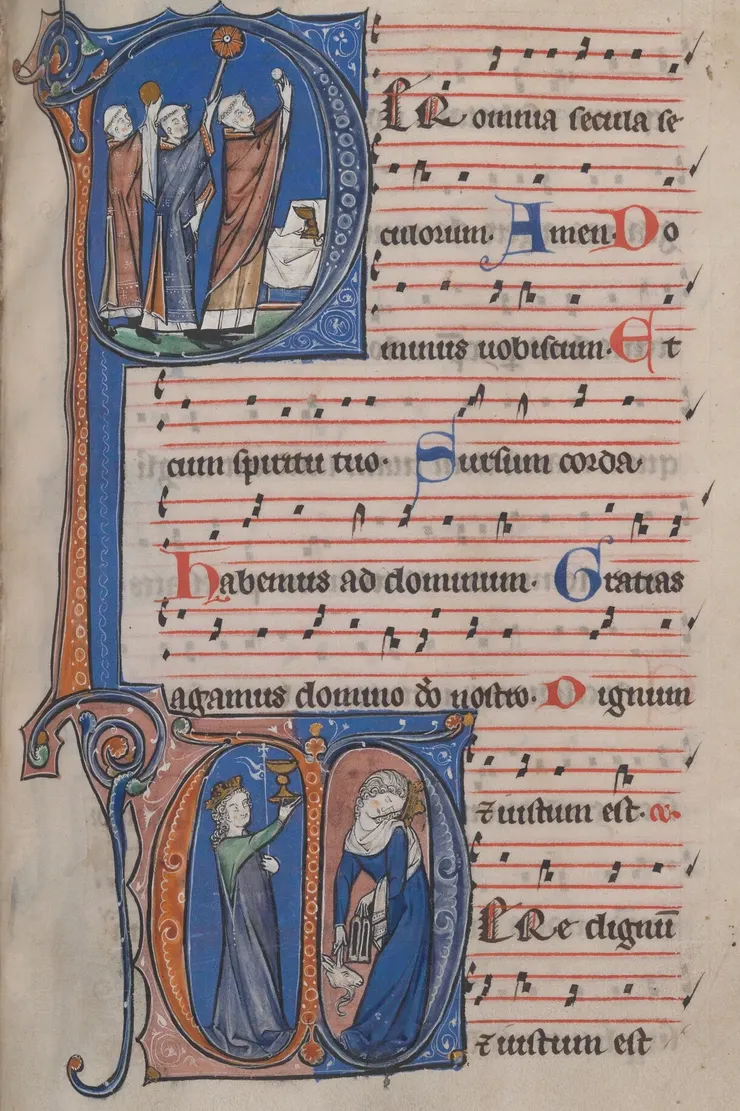 PER omnia secula se
culorum. Amen. Do
minus uobiscum. Et
cum spiritu tuo. Sursum corda.
Habemus ad dominum. Gratias
agamus domino dō nostro. Dignum
⁊ iustum est.
VERe dignū
⁊ iustum est